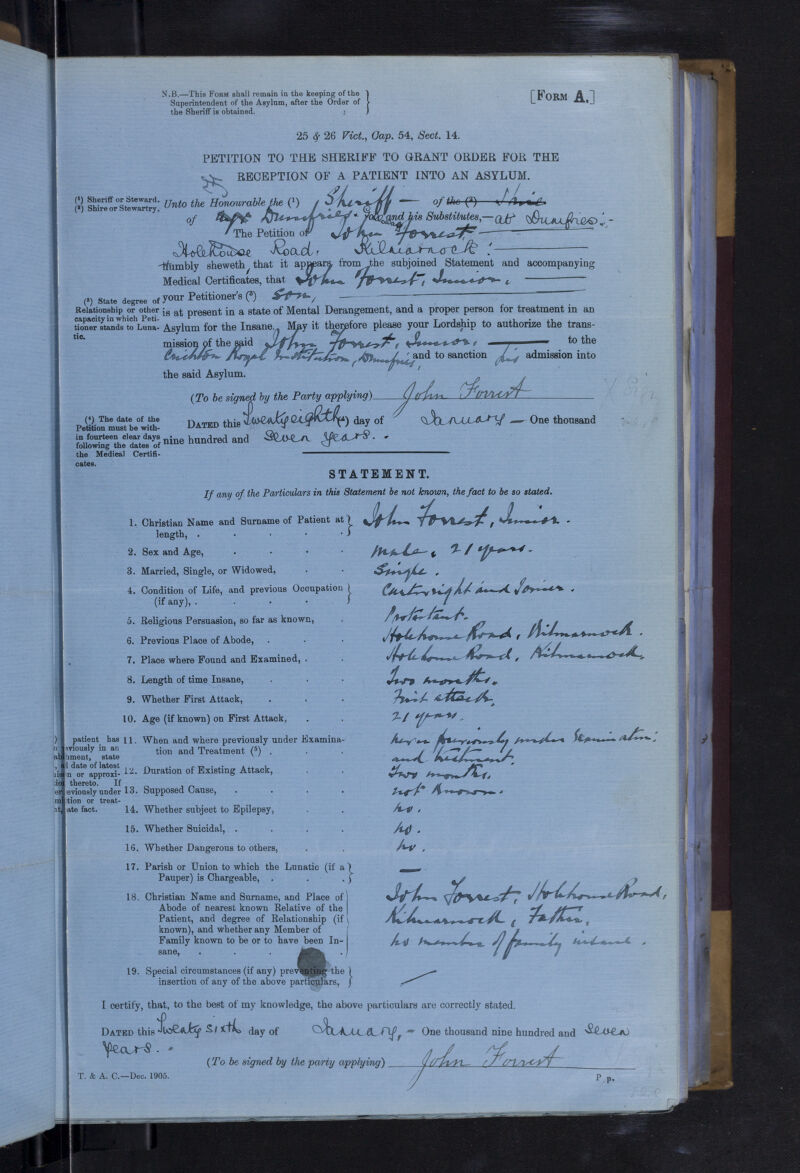 N.B.—This Form shall remain in the keeping of the
Superintendent of the Asylum, after the Order of
the Sheriff is obtained.
[Form A.]
25 & 26 Vict., Cap. 54, Sect. 14.
PETITION TO THE SHERIFF TO GRANT ORDER FOR THE
RECEPTION OF A PATIENT INTO AN ASYLUM.
(1) Sheriff or Steward.
(2) Shire or Stewartry.
Unto the Honourable the (1) Sheriff — of the (2) Shire
of Dumfries and his Substitutes,—at Dumfries:-
The Petition of John Forrest
Holehouse Road, Kilmarnock:
Humbly sheweth, that it appears from the subjoined Statement and accompanying
Medical Certificates, that John Forrest, Junior,
(3) State degree of Relationship or other capacity in which Petitioner stands to Lunatic.
your Petitioner's (3) Son,
is at present in a state of Mental Derangement, and a proper person for treatment in an
Asylum for the Insane. May it therefore please your Lordship to authorize the trans-
mission of the said John Forrest, Junior, to the
Crichton Royal Institution, Dumfries, and to sanction his admission into
the said Asylum.
(To be signed by the Party applying) John Forrest
(4) The date of the Petition must be within fourteen clear days following the dates of the Medical Certificates.
Dated this Twenty eighth (4) day of January — One thousand
nine hundred and Seven years.
STATEMENT.
If any of the Particulars in this Statement be not known, the fact to be so stated.
1. Christian Name and Surname of Patient at length, . John Forrest, Junior.
2. Sex and Age, Male, 21 years.
3. Married, Single, or Widowed, Single.
4. Condition of Life, and previous Occupation (if any), . Cartwright and Joiner.
5. Religious Persuasion, so far as known, Protestant.
6. Previous Place of Abode, . Holehouse Road, Kilmarnock.
7. Place where Found and Examined, . Holehouse Road, Kilmarnock,
8. Length of time Insane, Two months.
9. Whether First Attack, First attack,
10. Age (if known) on First Attack, 21 years.
patient has
viously in an
hment, state
date of latest
n or approxi-
thereto. If
eviously under
tion or treat-
ate fact.
11. When and where previously under Examina-
tion and Treatment (5) . Never previously under Examination
and treatment.
12. Duration of Existing Attack, Two months,
13. Supposed Cause, not known.
14. Whether subject to Epilepsy, no.
15. Whether Suicidal, . no.
16. Whether Dangerous to others, no.
17. Parish or Union to which the Lunatic (if a
Pauper) is Chargeable, . —
18. Christian Name and Surname, and Place of
Abode of nearest known Relative of the
Patient, and degree of Relationship (if
known), and whether any Member of
Family known to be or to have been In-
sane,
John Forrest, Holehouse Road,
Kilmarnock, Father,
no member of family insane.
19. Special circumstances (if any) preventing the
insertion of any of the above particulars,
I certify, that, to the best of my knowledge, the above particulars are correctly stated.
Dated this Twenty sixth day of January, - One thousand nine hundred and Seven
years. -
(To be signed by the party applying) John Forrest
T. & A. C.—Dec. 1905.
P p.